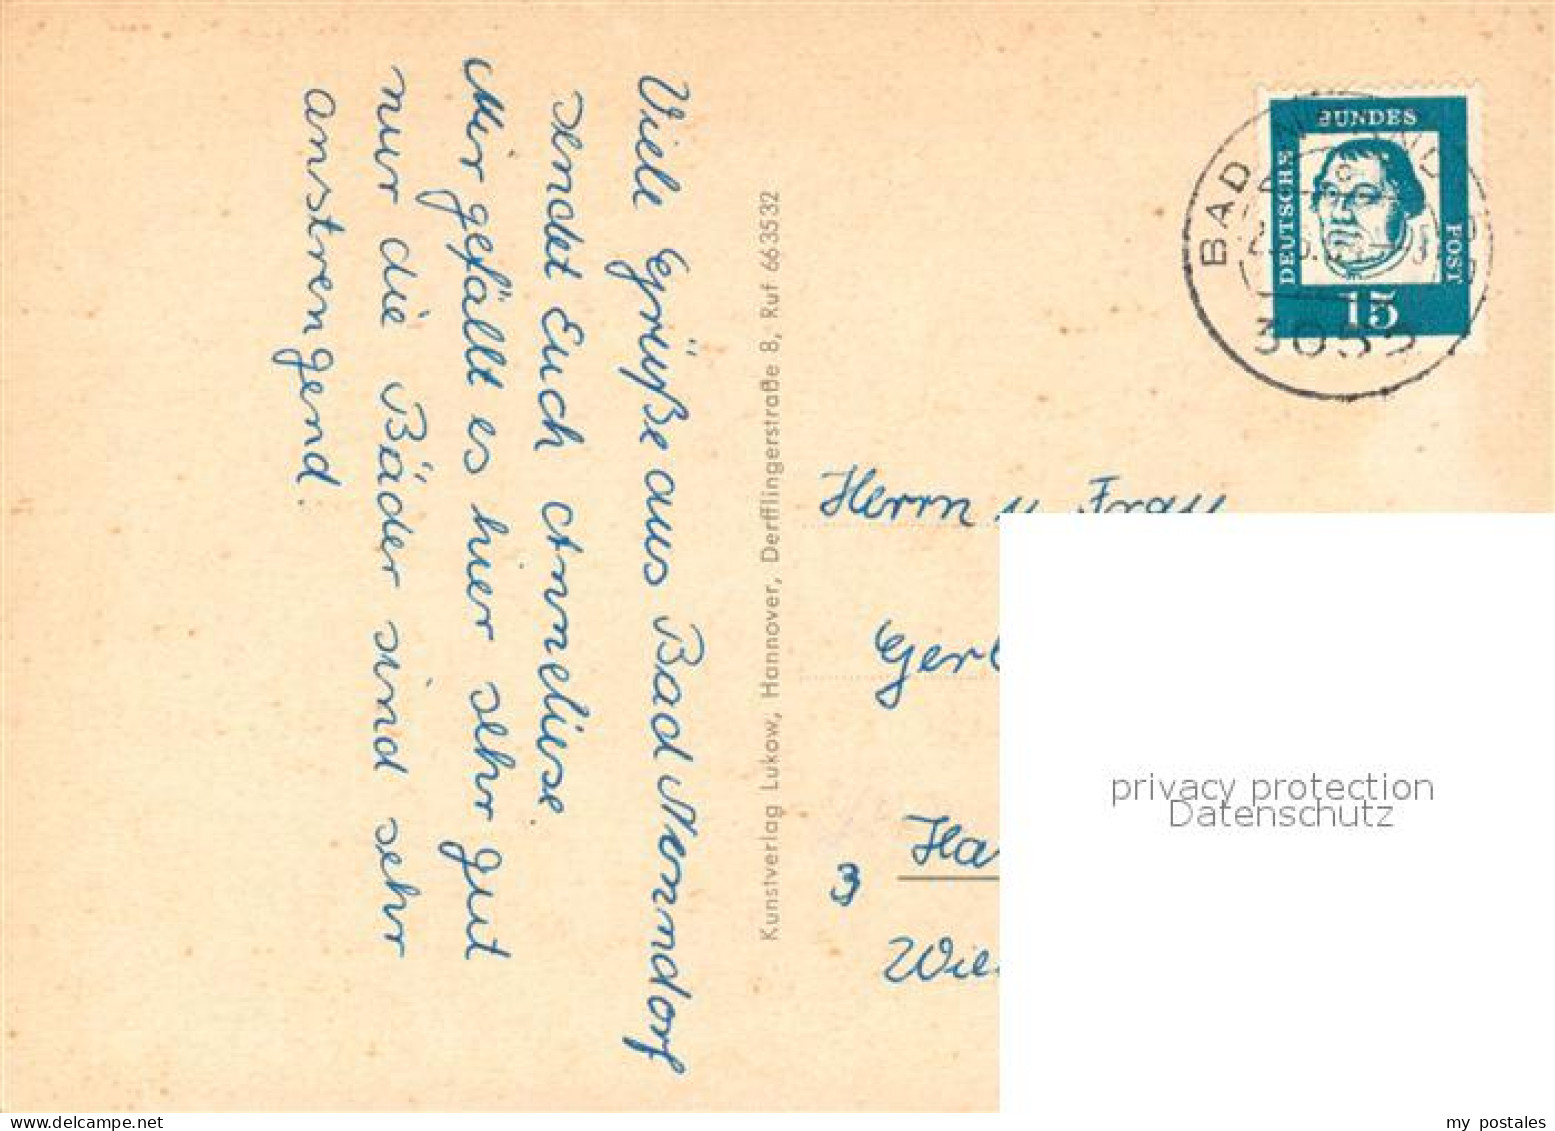 Viele Grüße aus Bad Nenndorf
sendet Euch Anneliese.
Mir gefällt es hier sehr gut
nur die Bäder sind sehr
anstrengend.
Kunstverlag Lukow, Hannover, Derfflingerstraße 8, Ruf 663532
DEUTSCHE
BUNDES
POST
15
BAD
3055
Herrn u. Frau
3
privacy protection
Datenschutz
ansichtskartenversand.com
my postales